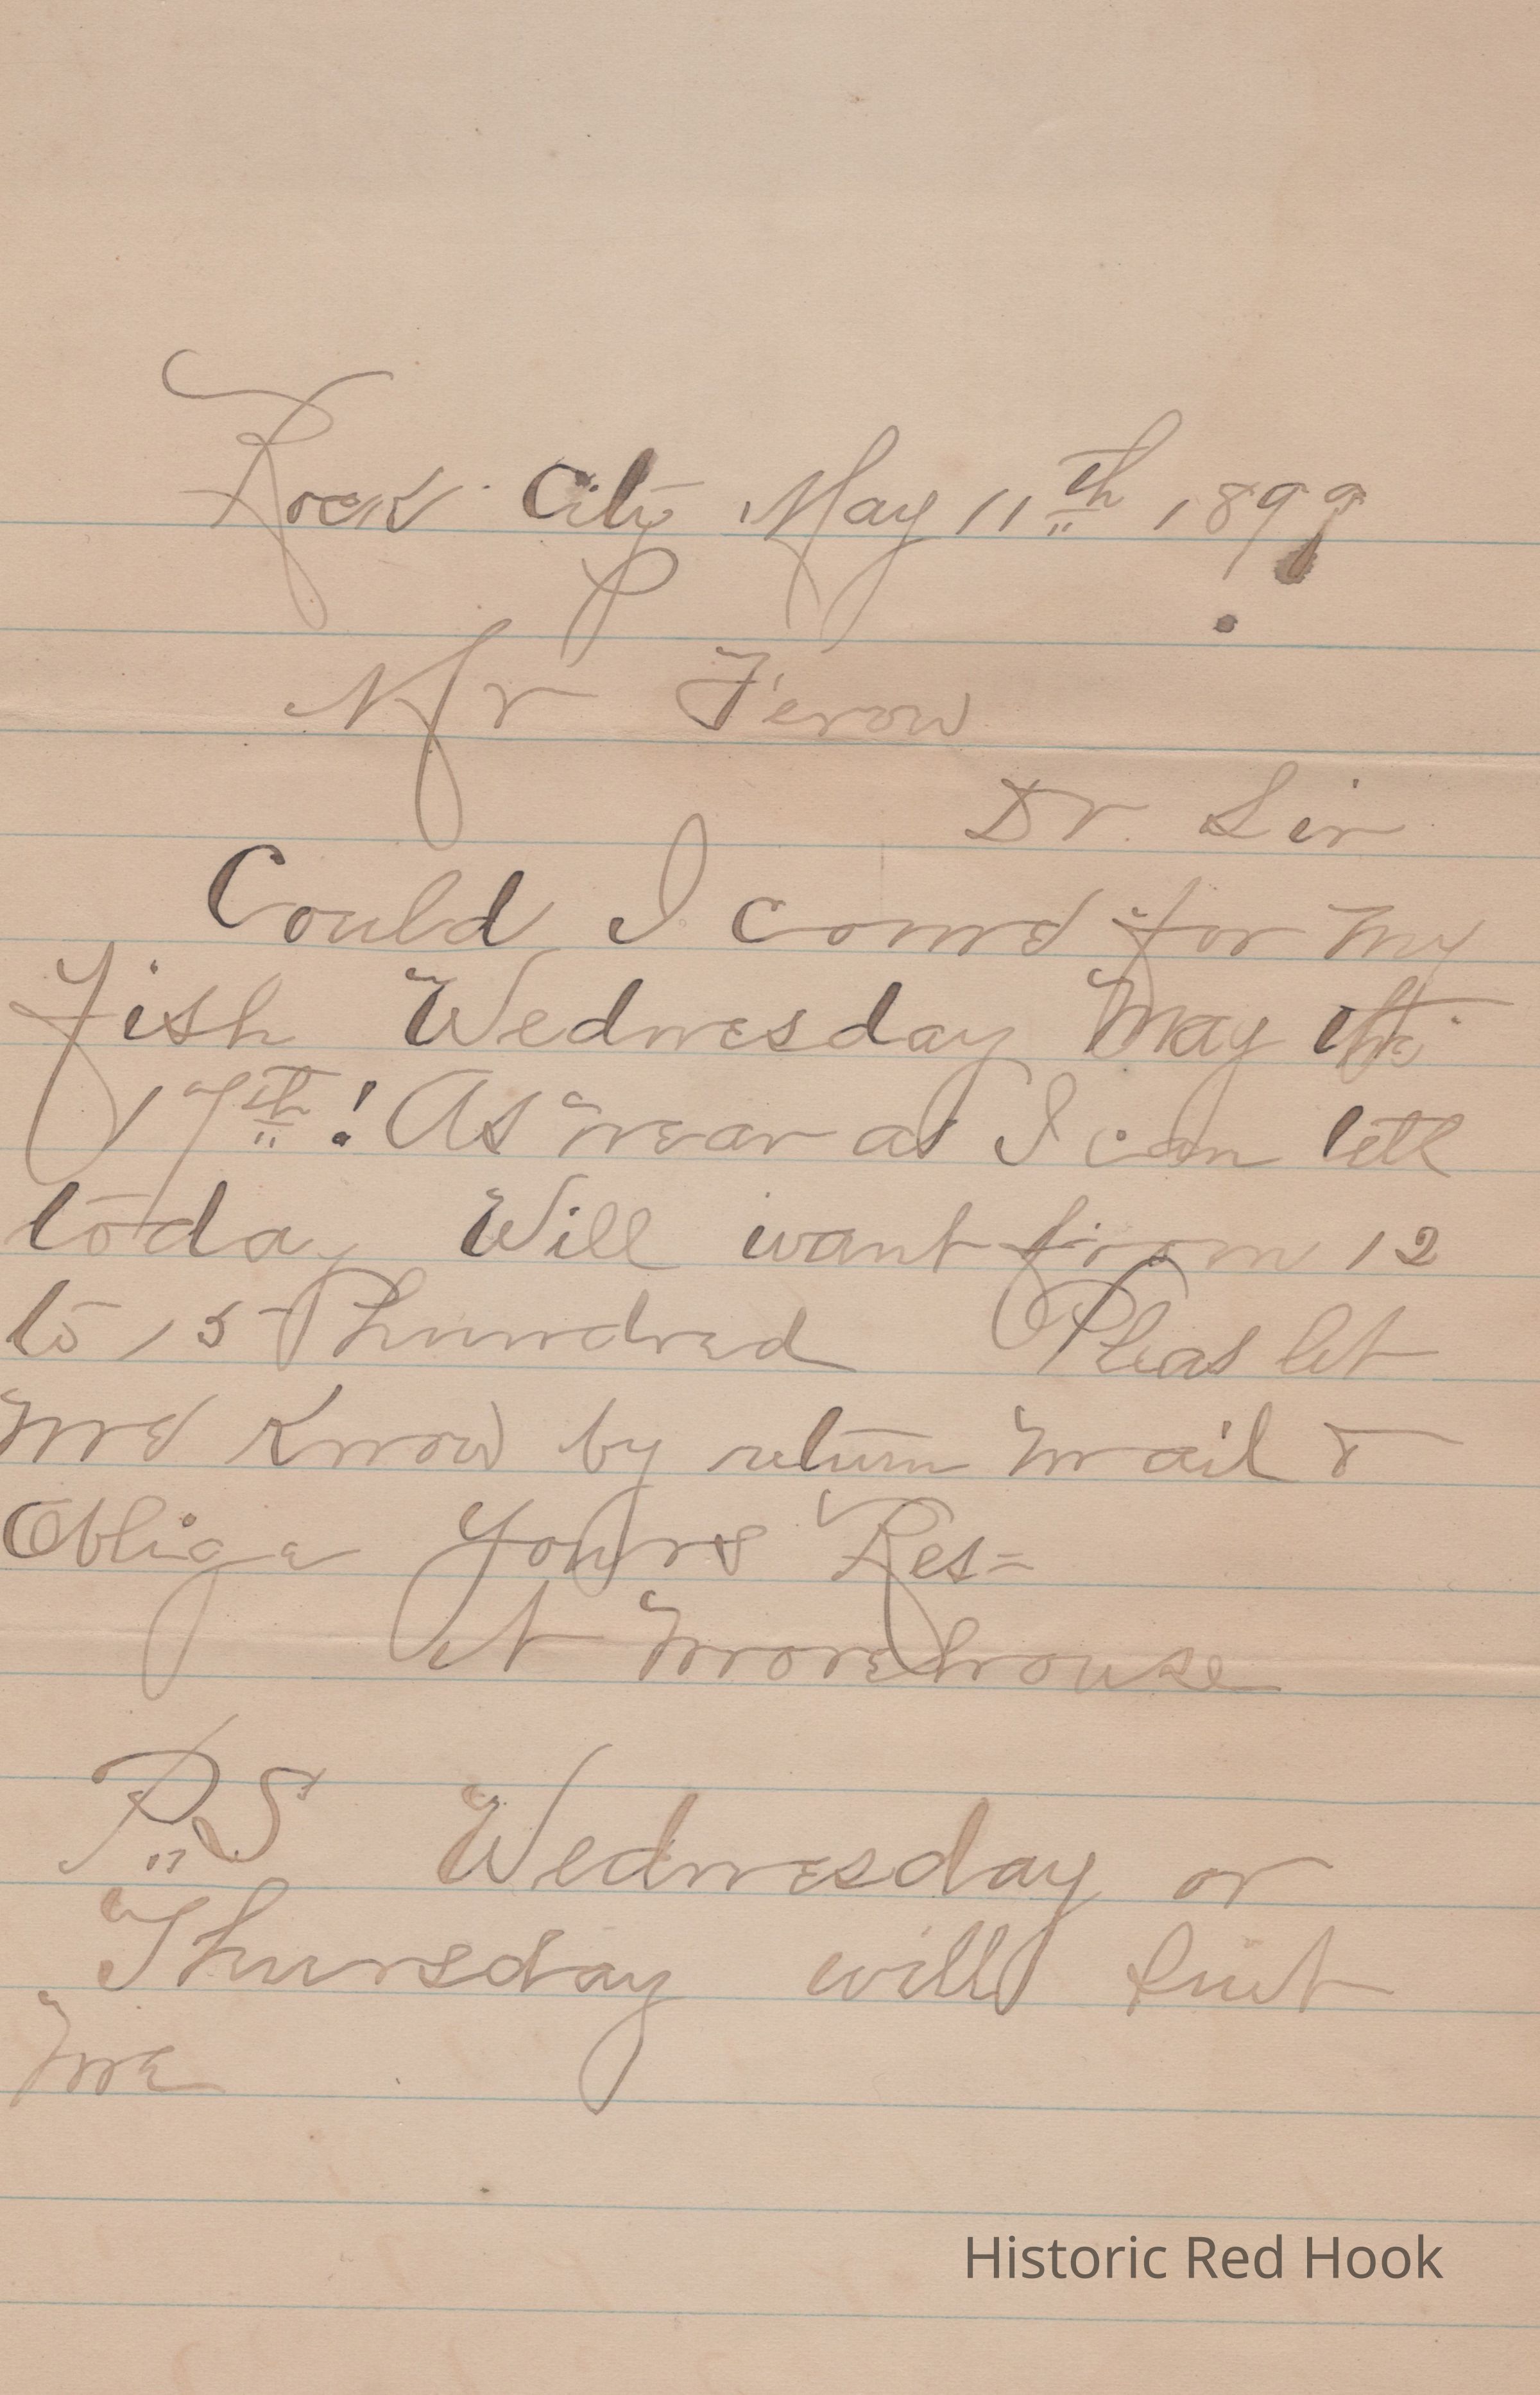 Rock City May 11th 1899
Mr Ferow
Dr. Sir
Could I come for my
fish Wednesday May the
17th! As near as I can tell
today Will want from 12
to 15 hundred Pleas let
me know by return mail &
Oblige Yours Res=
Morehouse
P.S Wednesday or
Thursday will suit
me
Historic Red Hook